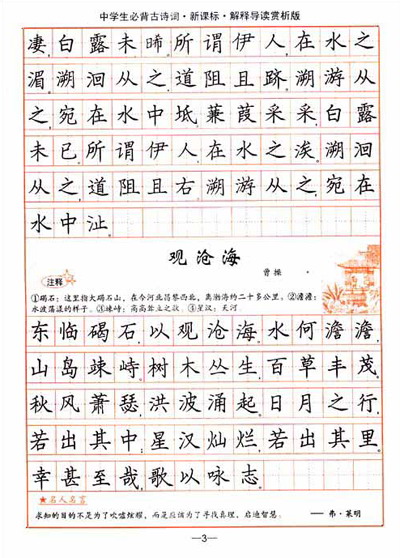 中学生必背古诗词·新课标·解释导读赏析版
凄,白露未晞。所谓伊人,在水之
湄。溯洄从之,道阻且跻。溯游从
之,宛在水中坻。蒹葭采采,白露
未已。所谓伊人,在水之涘。溯洄
从之,道阻且右。溯游从之,宛在
水中沚。
观沧海
曹操
注释
①碣石:这里指大碣石山,在今河北昌黎西北,离渤海约二十多公里。②澹澹:
水波荡漾的样子。③竦峙:高高耸立之状。④星汉:天河
东临碣石,以观沧海。水何澹澹,
山岛竦峙。树木丛生,百草丰茂。
秋风萧瑟,洪波涌起。日月之行,
若出其中;星汉灿烂,若出其里。
幸甚至哉,歌以咏志。
★名人名言
求知的目的不是为了吹嘘炫耀,而是应该为了寻找真理,启迪智慧。 ——弗·莱明
—3—